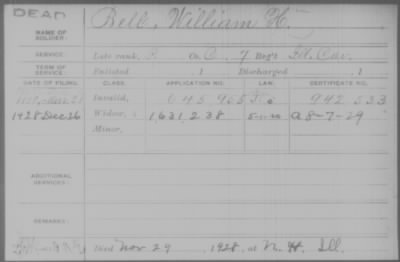 DEAD
NAME OF SOLDIER: Bell, William H.
SERVICE: Late rank, P. Co. C, 7 Reg't Ill. Cav.
TERM OF SERVICE: Enlisted 1 Discharged 1
DATE OF FILING. CLASS. APPLICATION NO. LAW. CERTIFICATE NO.
Invalid, 645,965 942,533
1928 Dec 26 Widow, 1,631,238 5-1-20 A 8-7-29
Minor,
ADDITIONAL SERVICES:
REMARKS:
Died Nov 29 1928, at N. H. Ill.